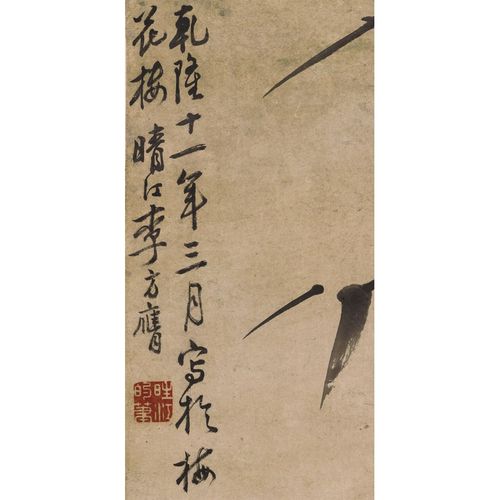 乾隆十一年三月写於梅
花楼 晴江李方膺
晴江
的筆